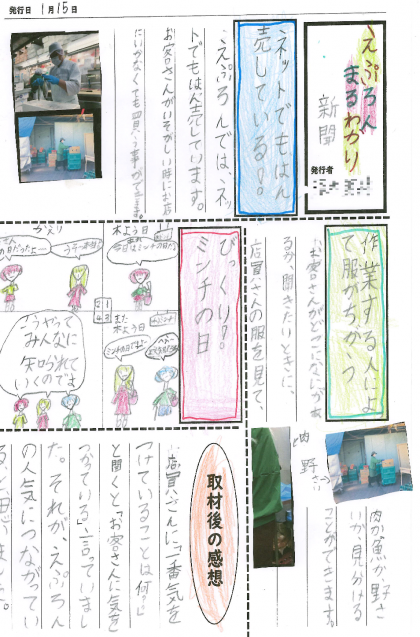 発行日 1月15日
えぷろん
まるわかり
新聞
発行者
ネットでもはん
売している!!
えぷろんでは、ネッ
トでもはん売しています。
お客さんがいそがしい時にお店
にいかなくても買う事ができます。
作業する人によ
って服がちがう
お客さんがどこになにがあ
るか聞きたいときに、
店員さんの服を見て、
肉
野さい
肉か魚か野さ
いか、見分ける
ことができます。
びっくり!!
ミンチの日
木よう日
今日はミンチの日だ
また
木よう日
かえり
こうやって
みんなに
知られて
いくのです
取材後の感想
店員さんに「一番気を
つけていることは何?」
と聞くと「お客さんに気を
つかっている」と言っていまし
た。それが、えぷろん
の人気につながってい
ると思いました。